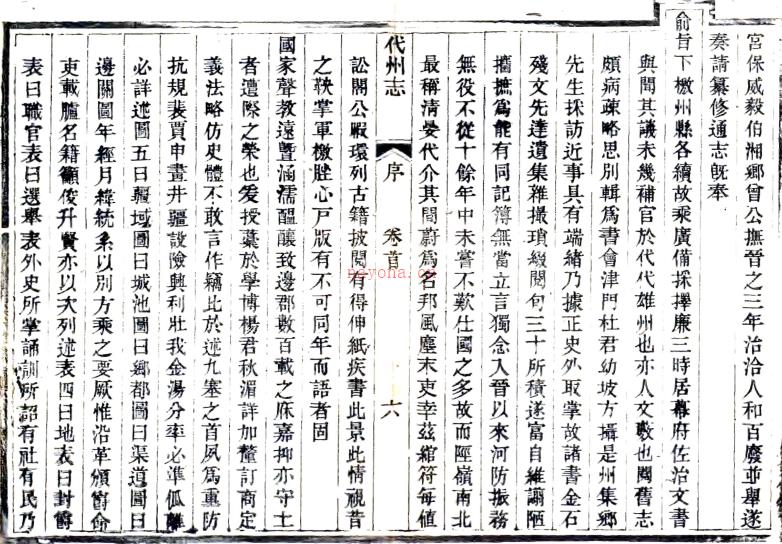 宮保威毅伯湘鄉曾公撫晉之三年治洽人和百廢並舉遂
奏請纂修通志既奉
俞旨下檄州縣各續故乘廣備採擇廉三時居幕府佐治文書
與聞其議未幾補官於代代雄州也亦人文藪也閱舊志
頗病疎略思別輯爲書會津門杜君幼坡方攝是州集鄉
先生採訪近事具有端緒乃據正史外取掌故諸書金石
殘文先達遺集雜撮瑣綴閱旬三十所積遂富自維譾陋
攟摭爲能有同記簿無當立言獨念入晉以來河防振務
無役不從十餘年中未嘗不歎仕國之多故而陘嶺南北
最稱清晏代介其間蔚爲名邦風塵末吏幸茲綰符每値
代州志
序
卷首
六
訟閣公暇環列古籍披閱有得伸紙疾書此景此情視昔
之鞅掌軍檄䏿心戸版有不可同年而語者固
國家聲教遠曁涵濡醞釀致邊郡數百載之庥嘉抑亦守土
者遭際之榮也爰授藁於學博楊君秋湄詳加釐訂商定
義法略仿史體不敢言作竊比於述九塞之首夙爲重防
抗規裴賈申畫井疆設險興利壯我金湯分率必準弧離
必詳述圖五曰疆域圖曰城池圖曰鄉都圖曰渠道圖曰
邊關圖年經月緯統系以別方乘之要厥惟沿革頒爵命
吏載臚名籍籲俊升賢亦以次列述表四曰地表曰封爵
表曰職官表曰選舉表外史所掌誦訓所詔有社有民乃
nayona.cn